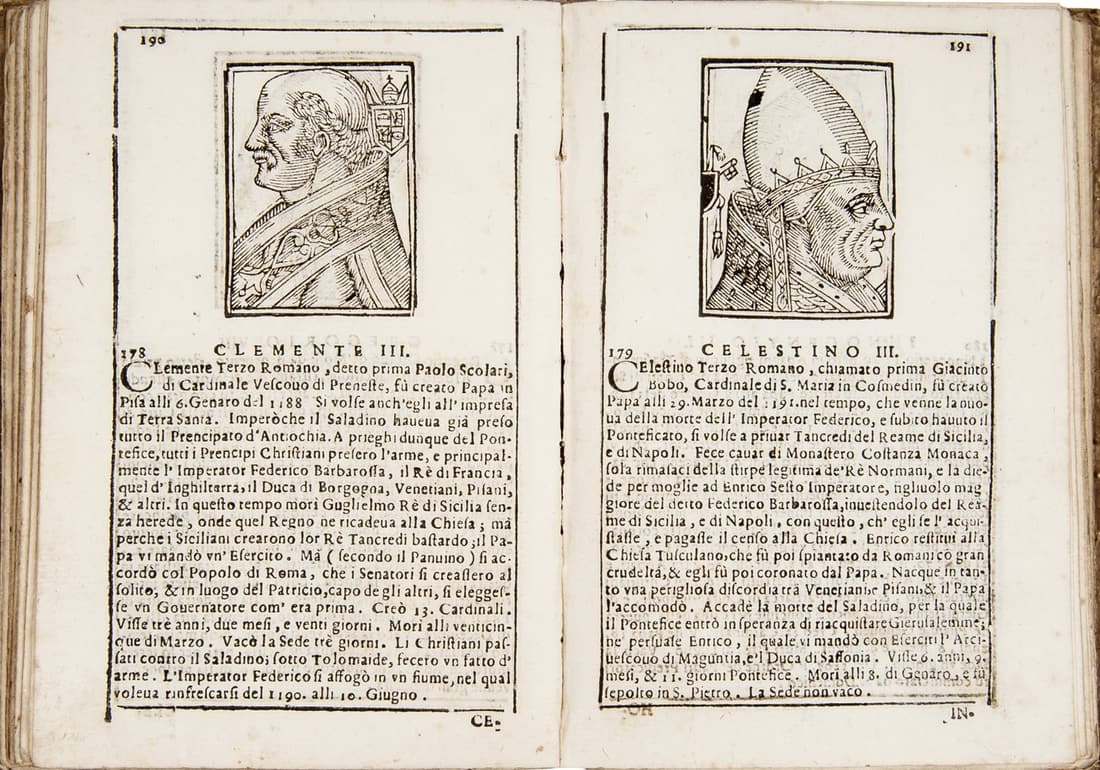 190
178 CLEMENTE III.
CLemente Terzo Romano, detto prima Paolo Scolari,
di Cardinale Vescouo di Preneste, fù creato Papa in
Pisa alli 6. Genaro del 1188 Si volse anch'egli all' impresa
di Terra Santa. Imperòche il Saladino haueua già preso
tutto il Prencipato d'Antiochia. A prieghi dunque del Pon-
tefice, tutti i Prencipi Christiani presero l'arme, e principal-
mente l' Imperator Federico Barbarossa, il Rè di Francia,
quel d' Inghilterra, il Duca di Borgogna, Venetiani, Pisani,
& altri. In questo tempo morì Guglielmo Rè di Sicilia sen-
za herede, onde quel Regno ne ricadeua alla Chiesa; mà
perche i Siciliani crearono lor Rè Tancredi bastardo; il Pa-
pa vi mandò vn' Esercito. Mà (secondo il Panuino) si ac-
cordò col Popolo di Roma, che i Senatori si creassero al
solito; & in luogo del Patricio, capo de gli altri, si elegges-
se vn Gouernatore com' era prima. Creò 13. Cardinali.
Visse trè anni, due mesi, e venti giorni. Morì alli venticin-
que di Marzo. Vacò la Sede trè giorni. Li Christiani pas-
sati contro il Saladino; sotto Tolomaide, fecero vn fatto d'
arme. L'Imperator Federico si affogò in vn fiume, nel qual
voleua rinfrescarsi del 1190. alli 10. Giugno.
CE-
191
179 CELESTINO III.
CElestino Terzo Romano, chiamato prima Giacinto
Bobo, Cardinale di S. Maria in Cosmedin, fù creato
Papa alli 29. Marzo del 1191. nel tempo, che venne la nuo-
ua della morte dell' Imperator Federico, e subito hauuto il
Ponteficato, si volse a priuar Tancredi del Reame di Sicilia,
e di Napoli. Fece cauar di Monastero Costanza Monaca,
sola rimasaci della stirpe legitima de'Rè Normani, e la die-
de per moglie ad Enrico Sesto Imperatore, figliuolo mag
giore del detto Federico Barbarossa, inuestendolo del Rea-
me di Sicilia, e di Napoli, con questo, ch' egli se l' acqui-
stasse, e pagasse il censo alla Chiesa. Enrico restituì alla
Chiesa Tusculano, che fù poi spiantato da Romani cō gran
crudeltà, & egli fù poi coronato dal Papa. Nacque in tan-
to vna perigliosa discordia trà Venetiani, e Pisani, & il Papa
l'accomodò. Accadè la morte del Saladino, per la quale
il Pontefice entrò in speranza di riacquistare Gierusalemme;
ne' persuase Enrico, il quale vi mandò con Eserciti l' Arci-
uescouo di Maguntia, e'l Duca di Sassonia. Visse 6. anni, 9.
mesi, & 11. giorni Pontefice. Morì alli 8. di Genaro, e fù
sepolto in S. Pietro. La Sede non vacò.
IN-